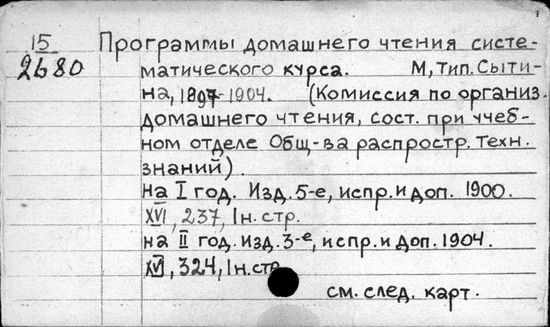 1
15
2680
Программы домашнего чтения систе-
матического курса. М, тип. Сыти-
на, 1897-1904. (Комиссия по организ.
домашнего чтения, сост. при учеб-
ном отделе Общ-ва распростр. техн.
знаний).
на I год. Изд. 5-е, испр. и доп. 1900.
XVI, 237, 1н. стр.
на II год. Изд. 3-е, испр. и доп. 1904.
XVI, 324, 1н. стр.
см. след. карт.